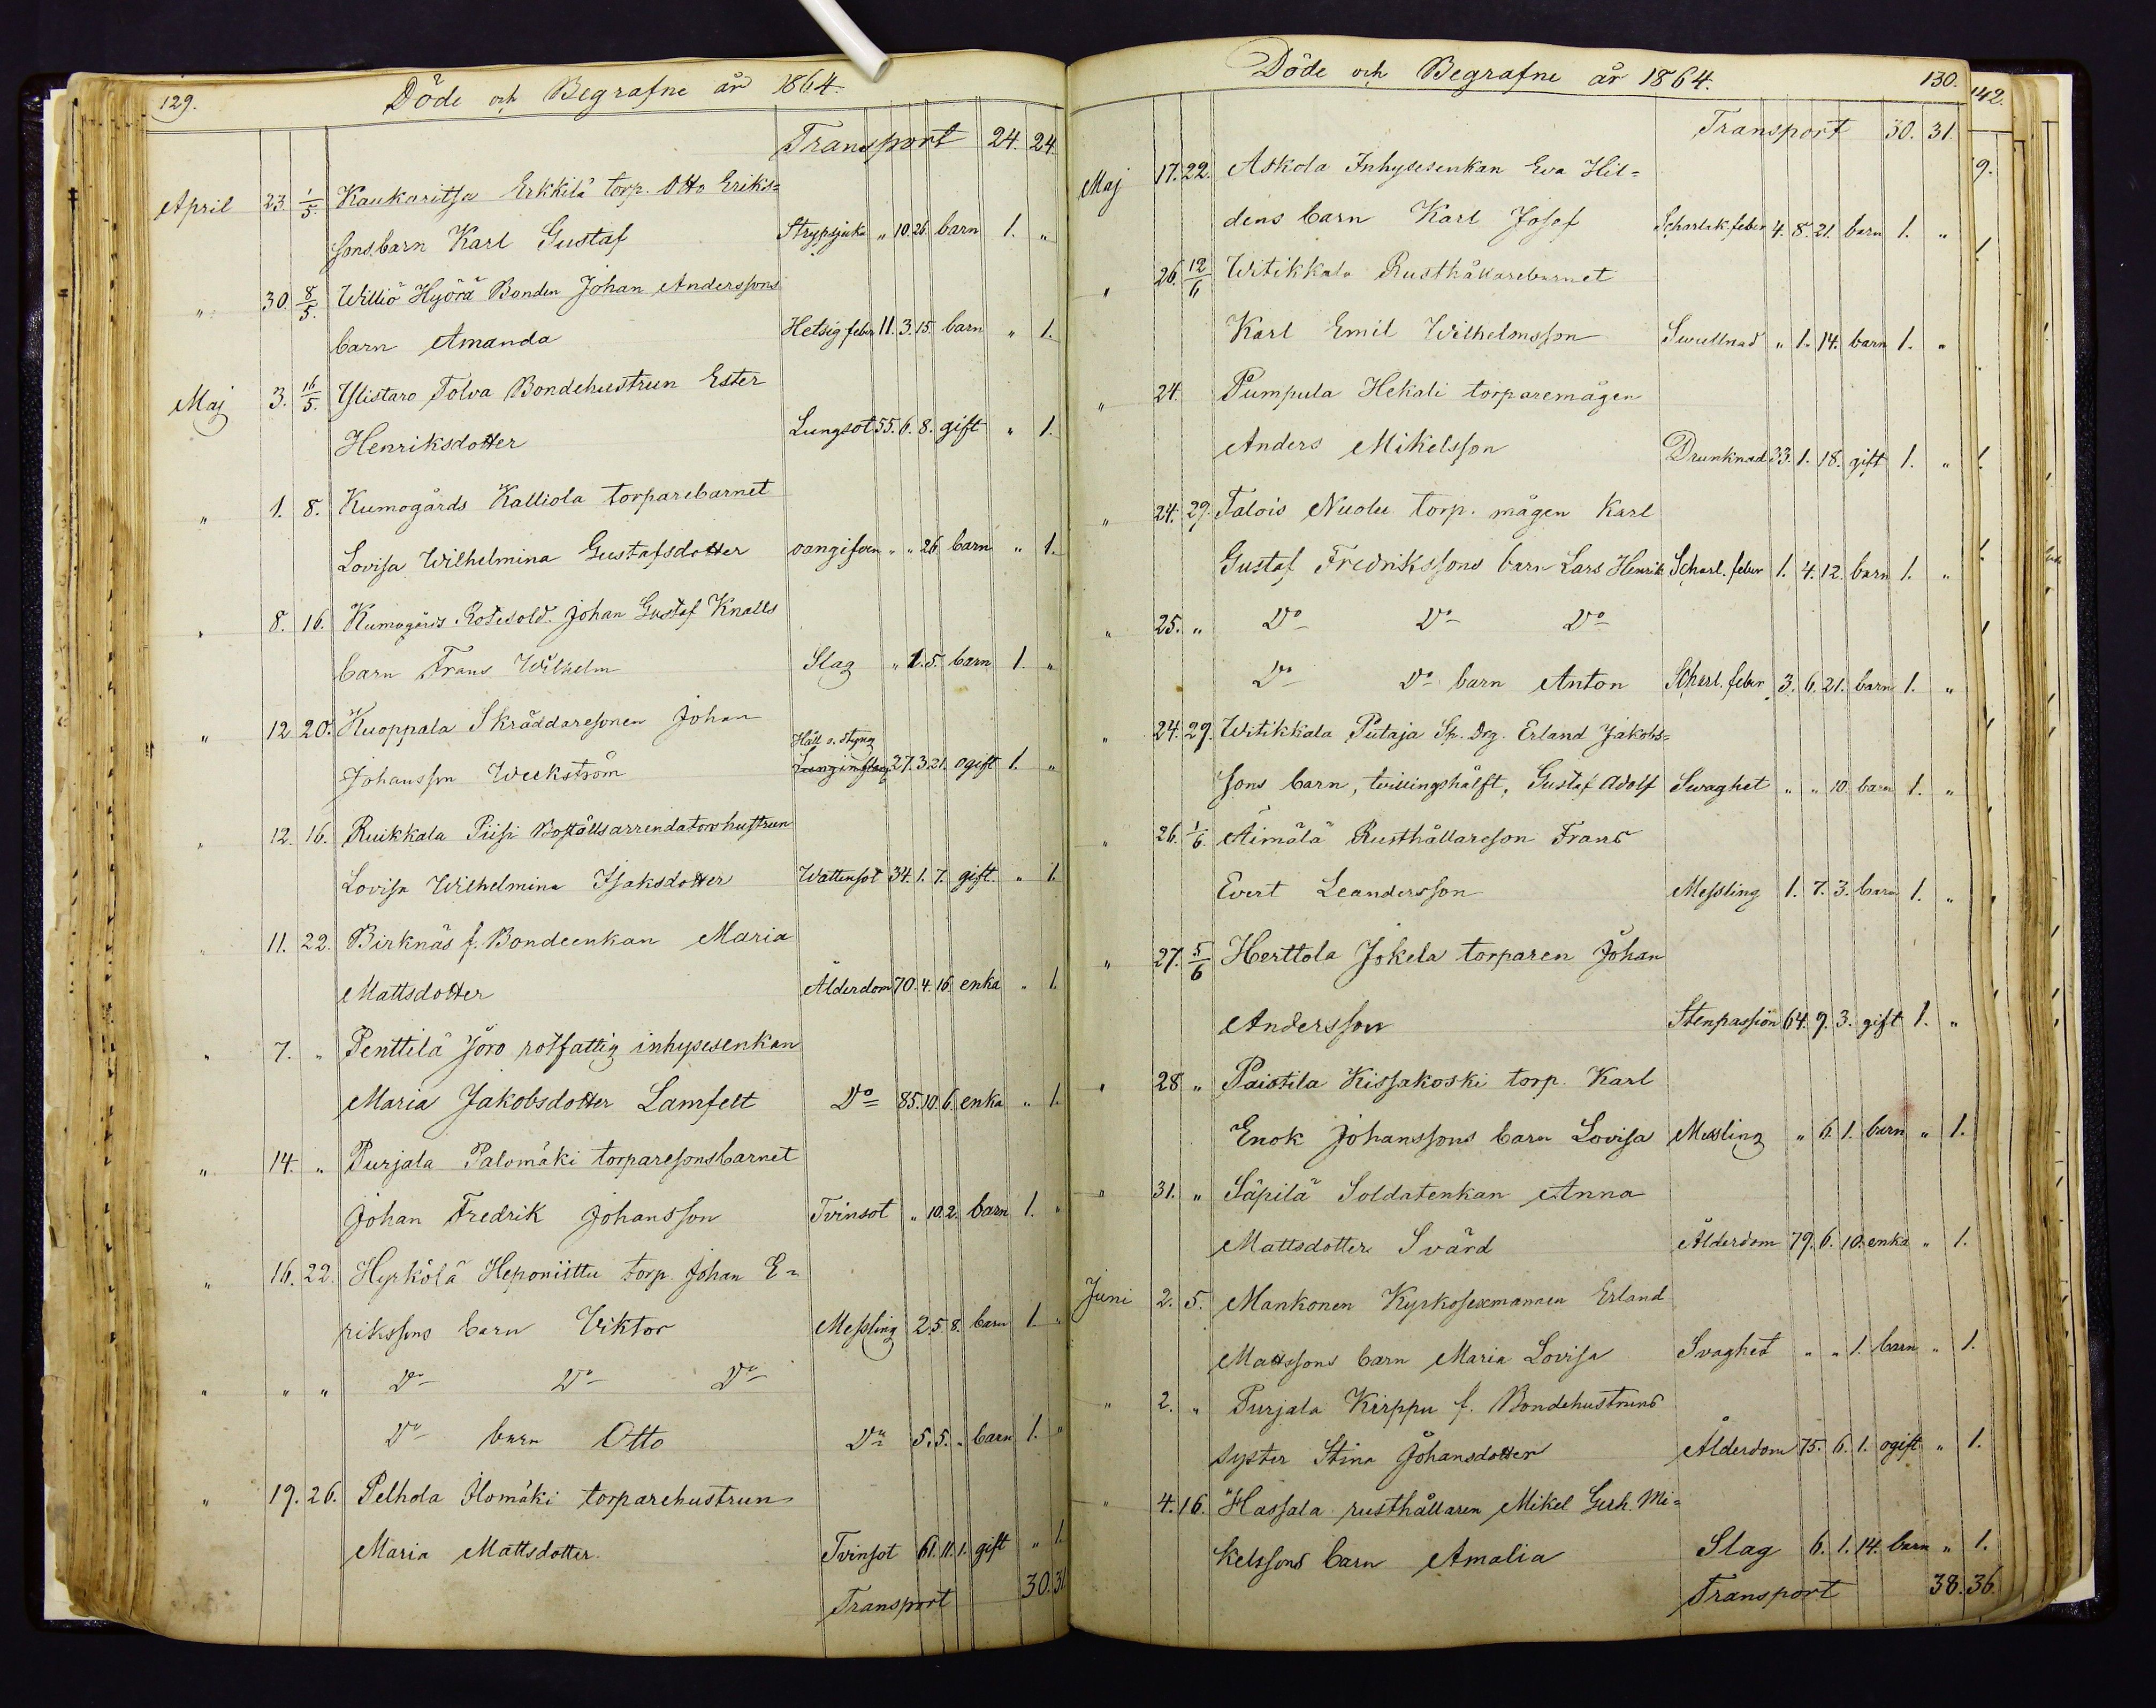 129.
Döde och Begrafne år 1864.
Transport 24. 24.
April 23. 1/5. Kaukaritsa Erkkilä torp. Otto Eriks=
sons barn Karl Gustaf Strypsjuka " 10. 26. barn 1. "
" 30. 8/5. Williö Hyörä Bonden Johan Anderssons
barn Amanda Hetsig feber 11. 3. 15. barn " 1.
Maj 3. 16/5. Ylistaro Tolva Bondehustrun Ester
Henriksdotter Lungsot 55. 6. 8. gift " 1.
" 1. 8. Kumogårds Kalliola torparebarnet
Lovisa Wilhelmina Gustafsdotter oangifven " " 26 barn " 1.
" 8. 16. Kumogårds Rotesold. Johan Gustaf Knalls
barn Frans Wilhelm Slag " 1. 5. barn 1. "
" 12 20. Kuoppala Skräddaresonen Johan
Håll o. styng
Johansson Weckström 27. 3 21. ogift 1. "
" 12. 16. Ruikkala Piisi Boställsarrendatorshustrun
Lovisa Wilhelmina Isaksdotter Wattensot 34. 1. 7. gift. " 1.
" 11. 22. Birknäs f. Bondeenkan Maria
Mattsdotter Ålderdom 70. 4. 16 enka " 1.
" 7. " Penttilä Joro rotfattig inhysesenkan
Maria Jakobsdotter Lamfelt Do 85. 10. 6. enka " 1.
" 14. " Purjala Palomäki torparesonsbarnet
Johan Fredrik Johansson Tvinsot " 10. 2. barn 1. "
" 16. 22. Hyrkölä Heponiittu torp. Johan E=
rikssons barn Viktor Messling 2. 5. 8. barn 1. "
" " " Do Do Do
Do barn Otto Do 5. 5. " barn 1. "
" 19. 26. Pelhola Ilomäki torparehustrun
Maria Mattsdotter. Tvinsot 61. 11. 1. gift " 1.
Transport 30. 31
Döde och Begrafne år 1864.
130.
142.
Transport 30. 31.
Maj 17. 22. Askola Inhysesenkan Eva Hil=
dens barn Karl Josef Scharlak. feber 4. 8. 21. barn 1. "
" 26. 12/6 Witikkala Rusthållarebarnet
Karl Emil Wilhelmsson Swullnad " 1. 14. barn 1. "
" 24. Pumpula Hekali torparemågen
Anders Mikelsson Drunknad 33. 1. 18. gift 1. "
" 24. 29. Talois Nuolu torp. mågen Karl
Gustaf Fredrikssons barn Lars Henrik Scharl. feber 1. 4. 12. barn 1. "
" 25. " Do Do Do
Do Do barn Anton Scharl. feber 3. 6. 21. barn 1. "
" 24. 29. Witikkala Putaja Sp. drg. Erland Jakobs=
sons barn, tvillingshälft, Gustaf Adolf Swaghet " " 10. barn 1. "
" 26. 1/6. Äimälä Rusthållareson Frans
Evert Leandersson Messling 1. 7. 3. barn 1. "
" 27. 5/6 Herttola Jokela torparen Johan
Andersson Stenpassion 64. 9. 3. gift 1. "
" 28 " Paistila Kissakoski torp. Karl
Enok Johanssons barn Lovisa Messling " 6. 1. barn " 1.
" 31. " Säpilä Soldatenkan Anna
Mattsdotter Svärd Ålderdom 79. 6. 10. enka " 1.
Juni 2. 5. Mankonen Kyrkosexmannen Erland
Mattssons barn Maria Lovisa Svaghet " " 1. barn " 1.
" 2. " Purjala Kirppu f. Bondehustruns
syster Stina Johansdotter Ålderdom 75. 6. 1. ogift " 1.
" 4. 16. Hassala rusthållaren Mikel Gerh. Mi=
kelssons barn Amalia Slag 6. 1. 14. barn " 1.
Transport 38. 36.